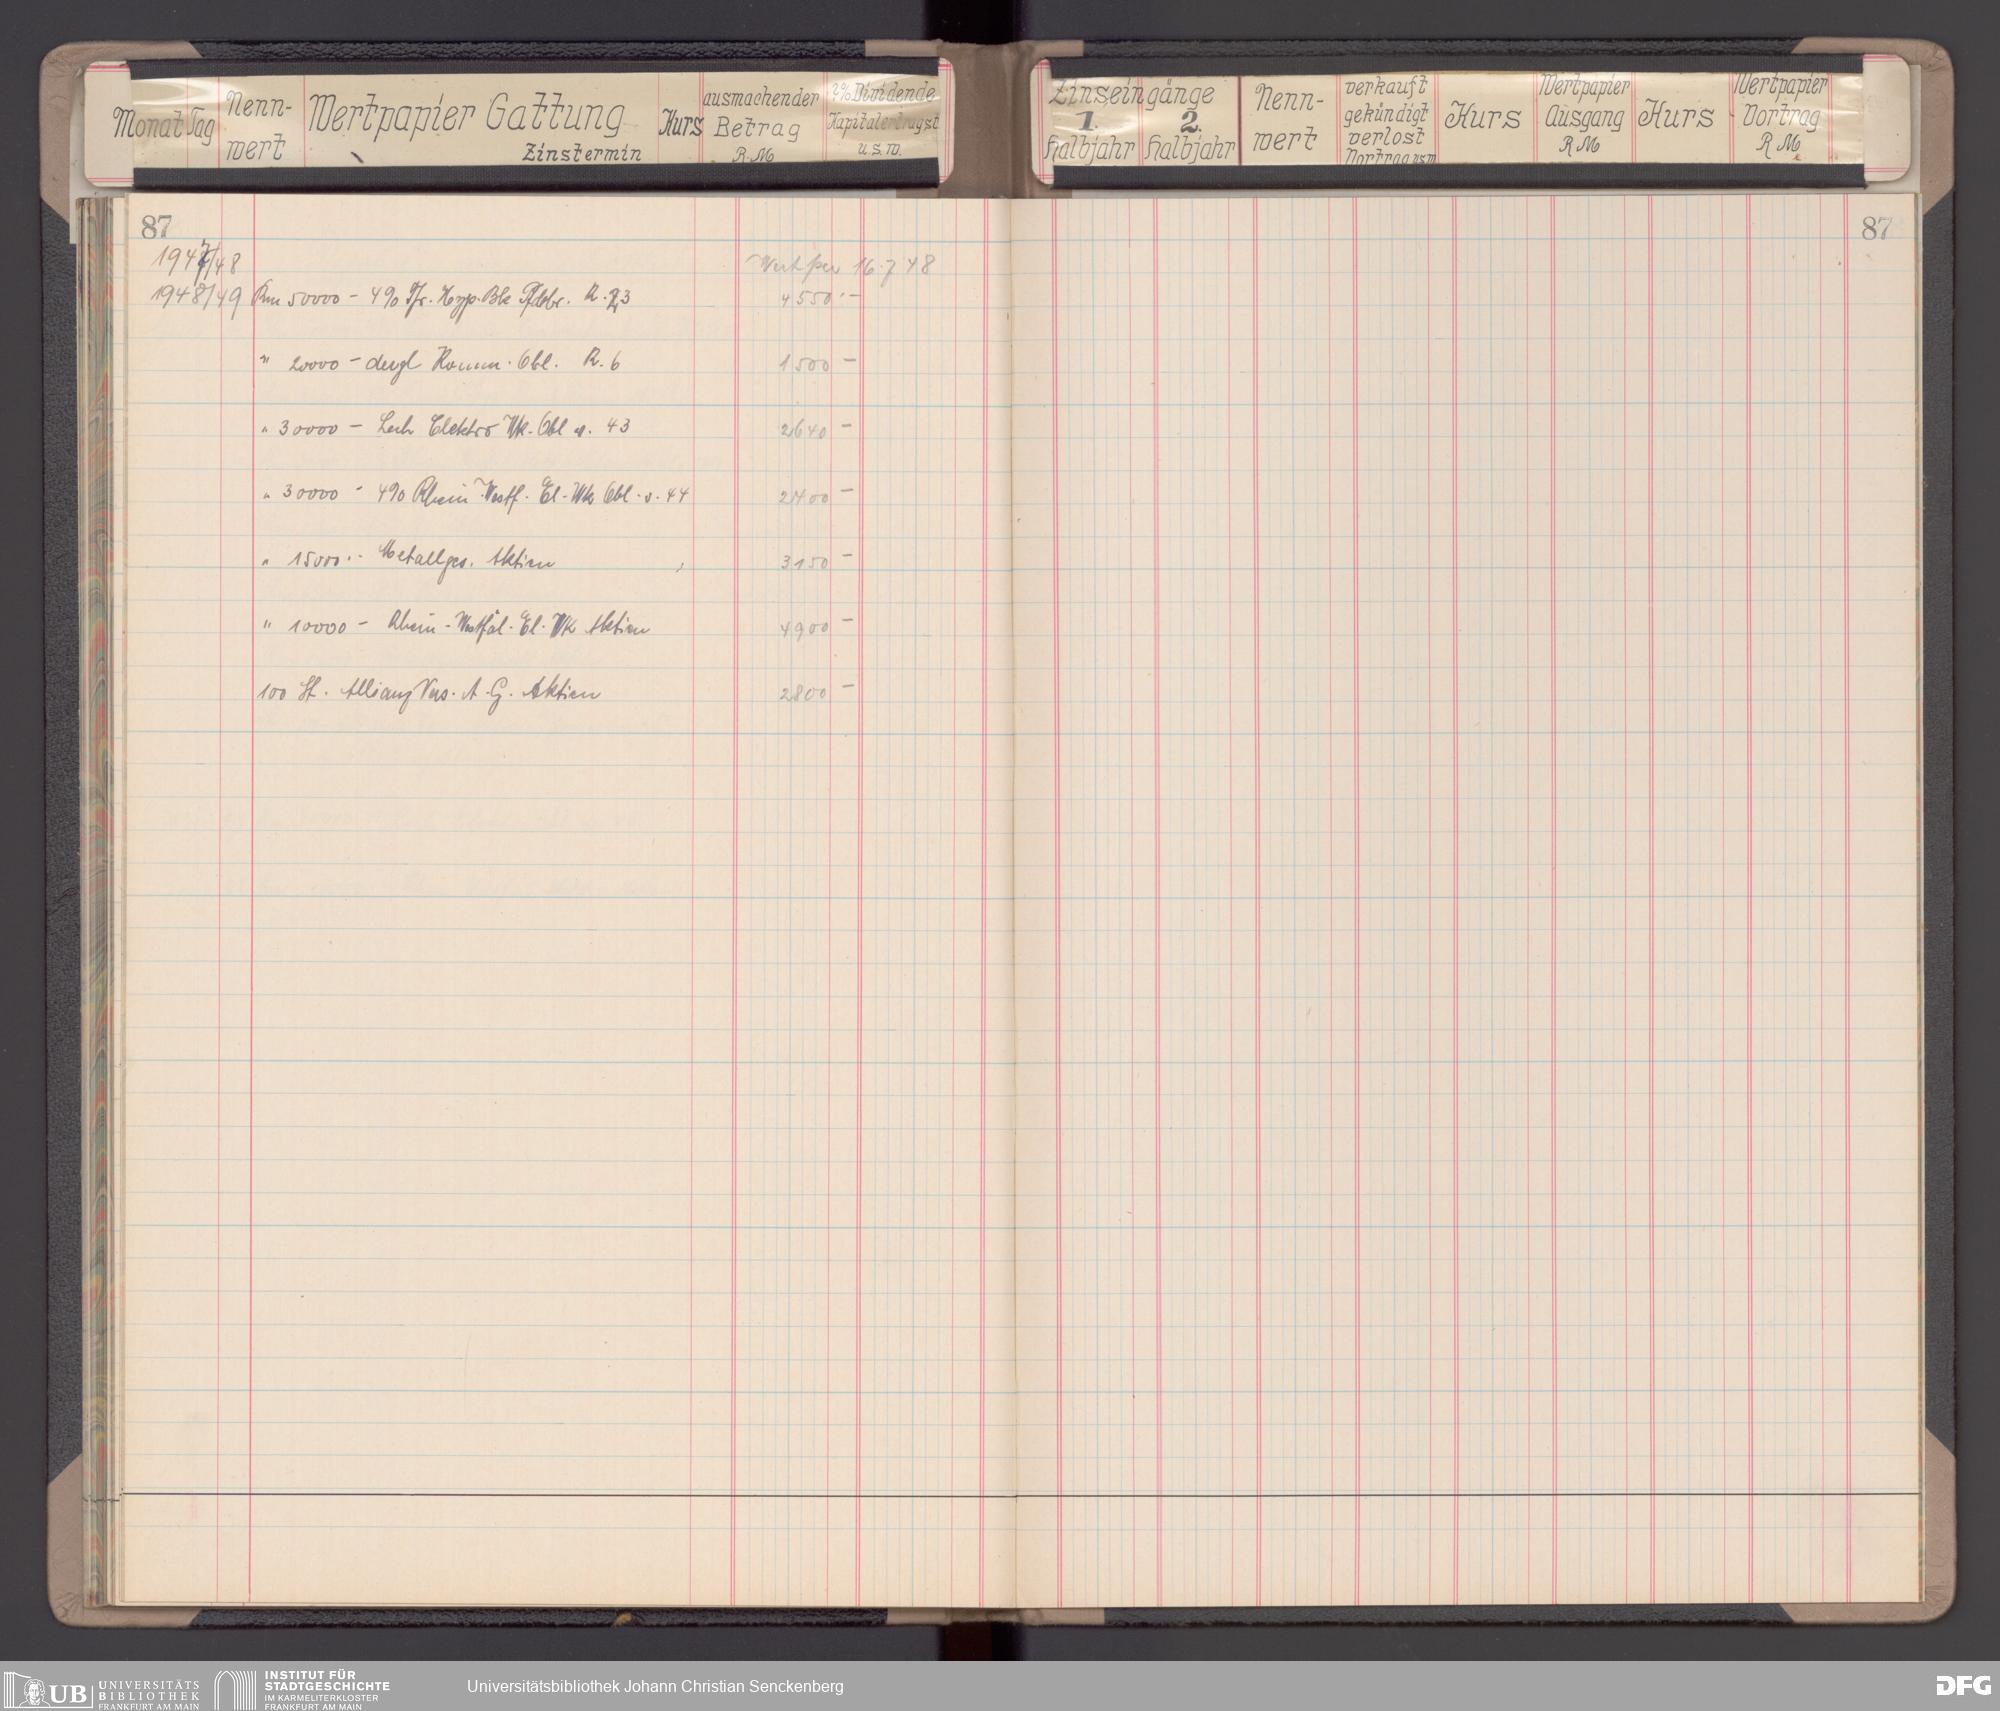 Monat Tag Nenn-wert Wertpapier Gattung Zinstermin Kurs ausmachender Betrag RM Dividende Kapitalertragst u.s.w.
Zinseingänge 1. Halbjahr 2. Halbjahr Nenn-wert verkauft gekündigt verlost Vortrag usw Kurs Wertpapier Ausgang RM Kurs Wertpapier Vortrag RM
87
87
1947/48 Wert per 16.7.48
1948/49 Rm 50000 – 4% Fr. Hyp. Bk Pfdbr. R. 23 4550.–
" 20000 – dergl Komm. Obl. R. 6 1500 –
" 30000 – Lech Elektro Wk. Obl v. 43 2640 –
" 30000 – 4% Rhein Westf. El. Wk Obl. v. 44 2400 –
" 15000.– Metallges. Aktien 3150 –
" 10000 – Rhein-Westfäl. El. Wk Aktien 4900 –
100 St. Allianz Vers. A.G. Aktien 2800 –
UB UNIVERSITÄTS
BIBLIOTHEK
FRANKFURT AM MAIN
INSTITUT FÜR
STADTGESCHICHTE
IM KARMELITERKLOSTER
FRANKFURT AM MAIN
Universitätsbibliothek Johann Christian Senckenberg
DFG